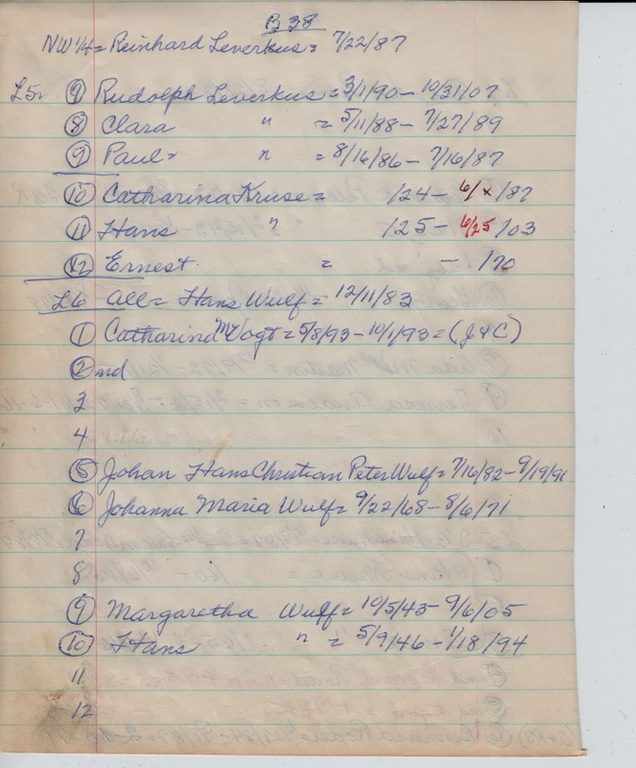 B 38
NW 1/4 = Reinhard Leverkus = 7/22/87
L5 = 9 Rudolph Leverkus = 3/1/90 - 10/31/07
8 Clara " = 5/11/88 - 7/27/89
9 Paul = " = 8/16/86 - 7/16/87
10 Catharina Kruse = /24 - 6/x/87
11 Hans " /25 - 6/25/03
12 Ernest = - /70
L6 All = Hans Wulf = 12/11/83
1 Catharind Vogt = 5/8/93 - 10/1/93 = (J&C)
2 nd
3
4
5 Johan Hans Christian Peter Wulf = 7/16/82 - 9/19/91
6 Johanna Maria Wulf = 9/22/68 - 8/6/71
7
8
9 Margaretha Wulf = 10/5/43 - 9/6/05
10 Hans " = 5/9/46 - 1/18/94
11
12